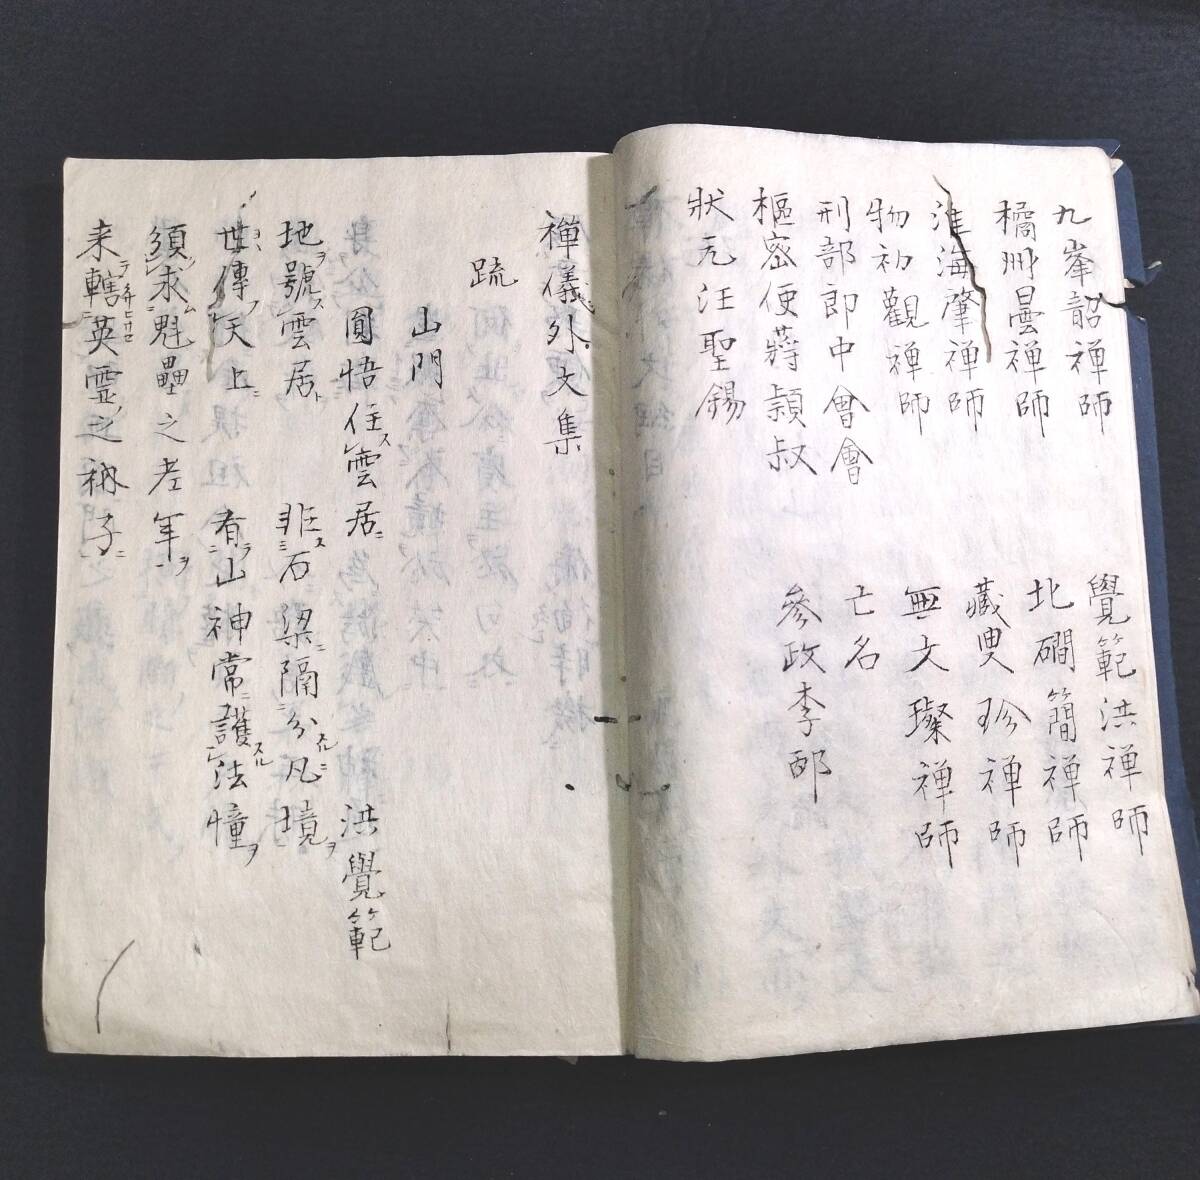 九峯韶禅師　覺範洪禅師
橘州曇禅師　北磵簡禅師
淮海肇禅師　藏叟珍禅師
物初觀禅師　無文璨禅師
刑部郎中會會　亡名
樞密便蒋頴叔　參政李邴
狀元汪聖錫
禪儀外文集
疏
山門
圓悟住雲居　洪覺範
地號雲居　非石梁隔分凡境
世傳天上　有山神常護法幢
須求魁壘之老年
来轄英霊之衲子